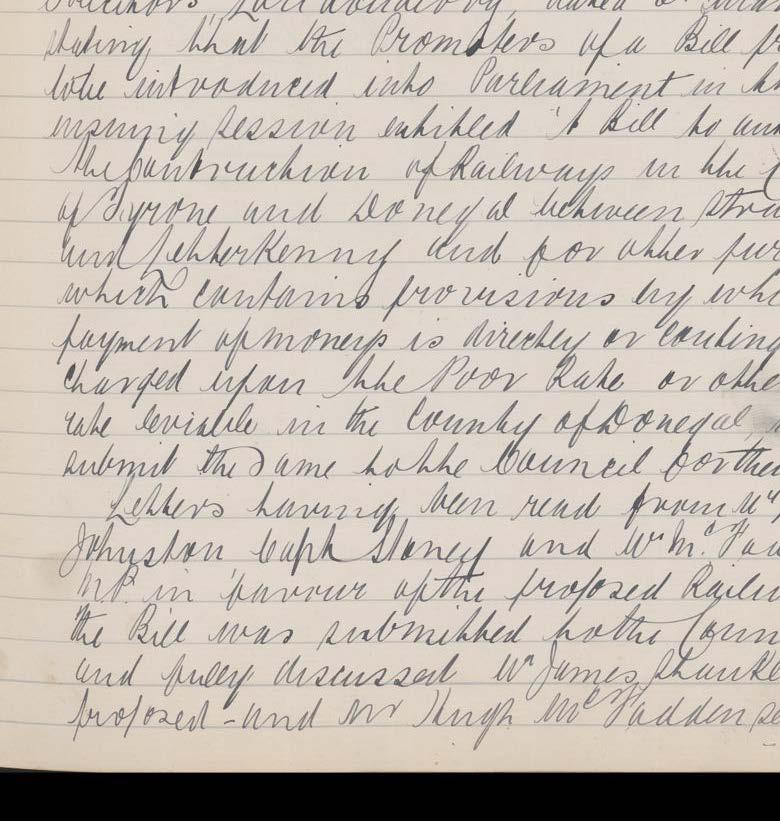 Solicitors Londonderry dated
stating that the Promoters of a Bill
to be introduced into Parliament in
ensuing session entitled "A Bill to
the Construction of Railways in the
of Tyrone and Donegal between Stra
and Letterkenny and for other pur
which contains provisions by wh
payment of moneys is directly or conting
charged upon the Poor Rate or othe
rate leviable in the County of Donegal,
submit the Same to the Council for the
Letters having been read from Mr
Johnston Capt Stoney and Mr McFad
MP. in favour of the proposed Railw
the Bill was submitted to the Coun
and fully discussed Mr James
proposed - and Mr Hugh McFadden se